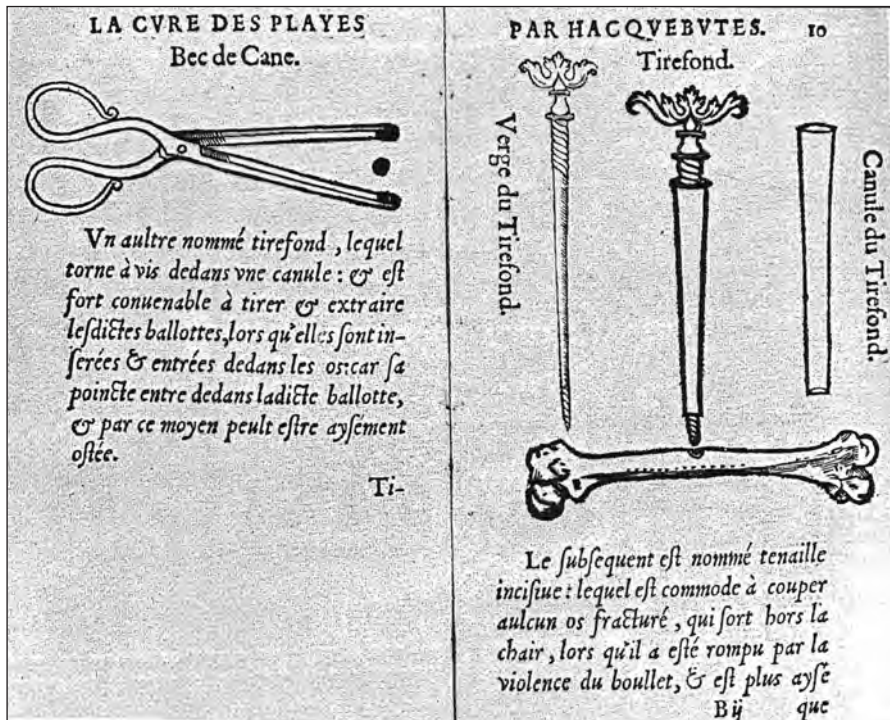 LA CVRE DES PLAYES
Bec de Cane.
Vn aultre nommé tirefond, lequel
torne à vis dedans vne canule: & eſt
fort conuenable à tirer & extraire
leſdictes ballottes, lors qu'elles ſont in-
ſerées & entrées dedans les os: car ſa
poincte entre dedans ladicte ballotte,
& par ce moyen peult eſtre ayſément
oſtée.
Ti-
PAR HACQVEBVTES. 10
Tirefond.
Verge du Tirefond.
Canule du Tirefond.
Le ſubſequent eſt nommé tenaille
inciſiue: lequel eſt commode à couper
aulcun os fracturé, qui ſort hors la
chair, lors qu'il a eſté rompu par la
violence du boullet, & eſt plus ayſé
Bij que